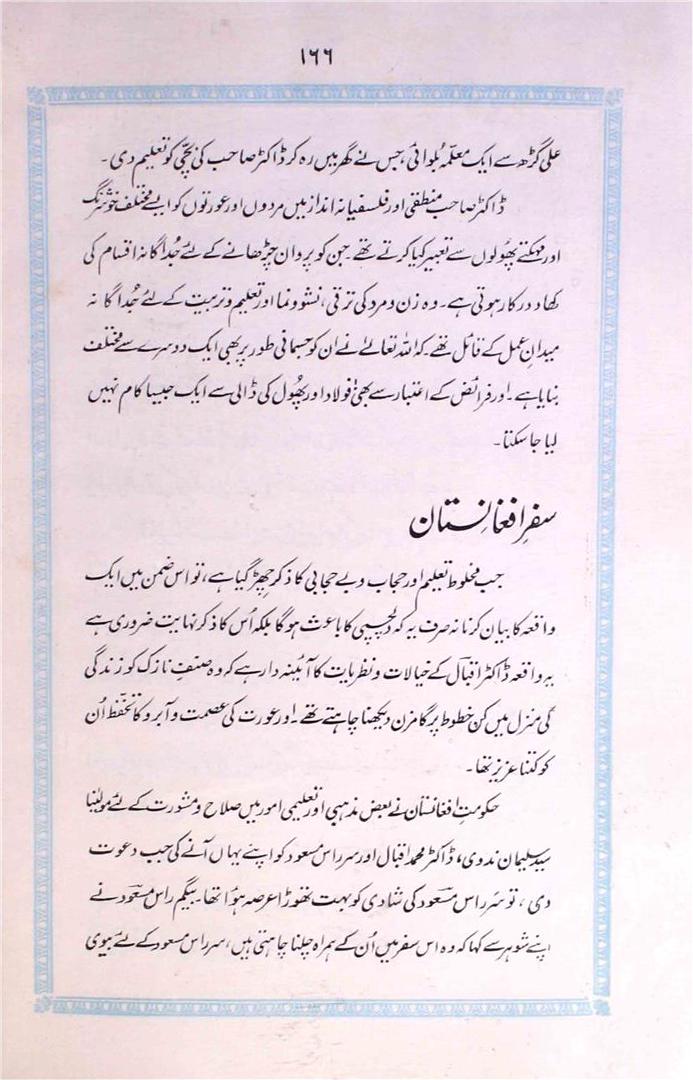 ۱۶۶
علی گڑھ سے ایک معلّمہ بُلوائی، جس نے گھر میں رہ کر ڈاکٹر صاحب کی بچّی کو تعلیم دی۔
ڈاکٹر صاحب منطقی اور فلسفیانہ انداز میں مردوں اور عورتوں کو ایسے مختلف خوشرنگ
اور مہکتے پھُولوں سے تعبیر کیا کرتے تھے۔ جن کو پروان چڑھانے کے لئے جُداگانہ اقسام کی
کھاد درکار ہوتی ہے۔ وہ زن و مرد کی ترقی، نشوونما اور تعلیم و تربیت کے لئے جُداگانہ
میدانِ عمل کے قائل تھے۔ کہ اللہ تعالےٰ نے ان کو جسمانی طور پر بھی ایک دوسرے سے مختلف
بنایا ہے۔ اور فرائض کے اعتبار سے بھی! فولاد اور پھُول کی ڈالی سے ایک جیسا کام نہیں
لیا جا سکتا۔
سفرِ افغانِستان
جب مخلوط تعلیم اور حجاب و بے حجابی کا ذکر چھِڑ گیا ہے، تو اس ضمن میں ایک
واقعہ کا بیان کرنا نہ صرف یہ کہ دلچسپی کا باعث ہو گا بلکہ اُس کا ذکر نہایت ضروری ہے
یہ واقعہ ڈاکٹر اقبال کے خیالات و نظریات کا آئینہ دار ہے کہ وہ صنفِ نازک کو زندگی
کی منزل میں کن خطوط پر گامزن دیکھنا چاہتے تھے۔ اور عورت کی عصمت و آبرو کا تحفّظ اُن
کو کتنا عزیز تھا۔
حکومتِ افغانستان نے بعض مذہبی اور تعلیمی امور میں صلاح و مشورت کے لئے مولینا
سید سلیمان ندوی، ڈاکٹر محمد اقبال اور سر راس مسعود کو اپنے یہاں آنے کی جب دعوت
دی، تو سر راس مسعود کی شادی کو بہت تھوڑا عرصہ ہُوا تھا۔ بیگم راس مسعود نے
اپنے شوہر سے کہا کہ وہ اس سفر میں اُن کے ہمراہ چلنا چاہتی ہیں، سر راس مسعود کے لئے بیوی